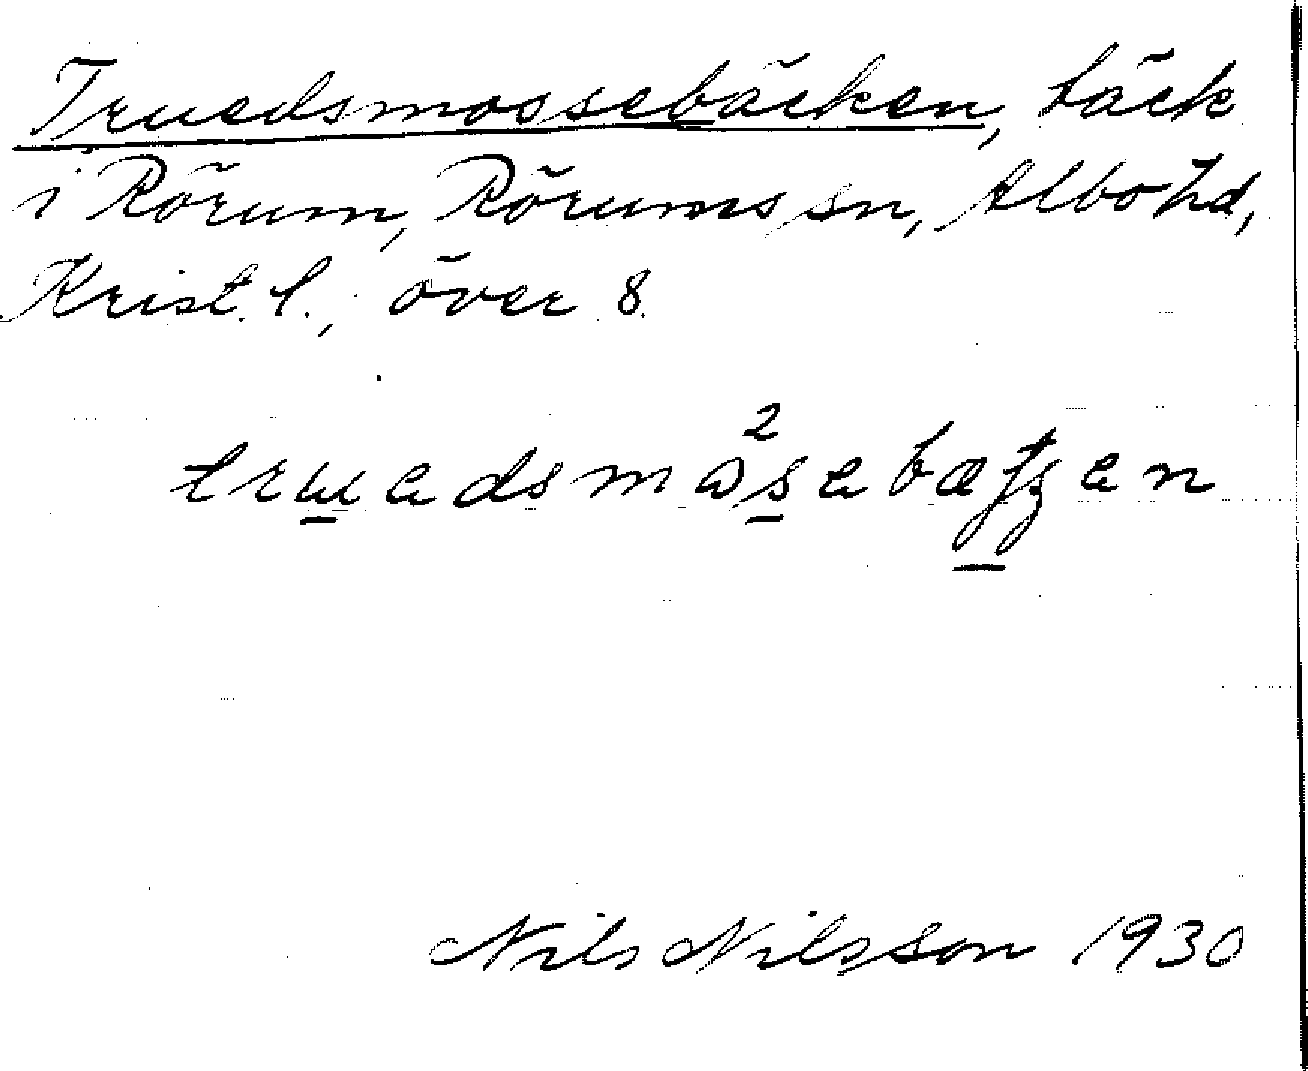 Truedsmossebäcken, bäck
i Rörum, Rörums sn, Albo hd,
Krist. l., över 8.
2
Nils Nilsson 1930